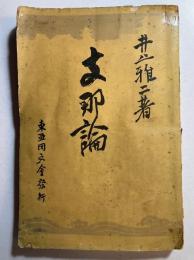 井上雅二著
支那論
東亜同文会発行